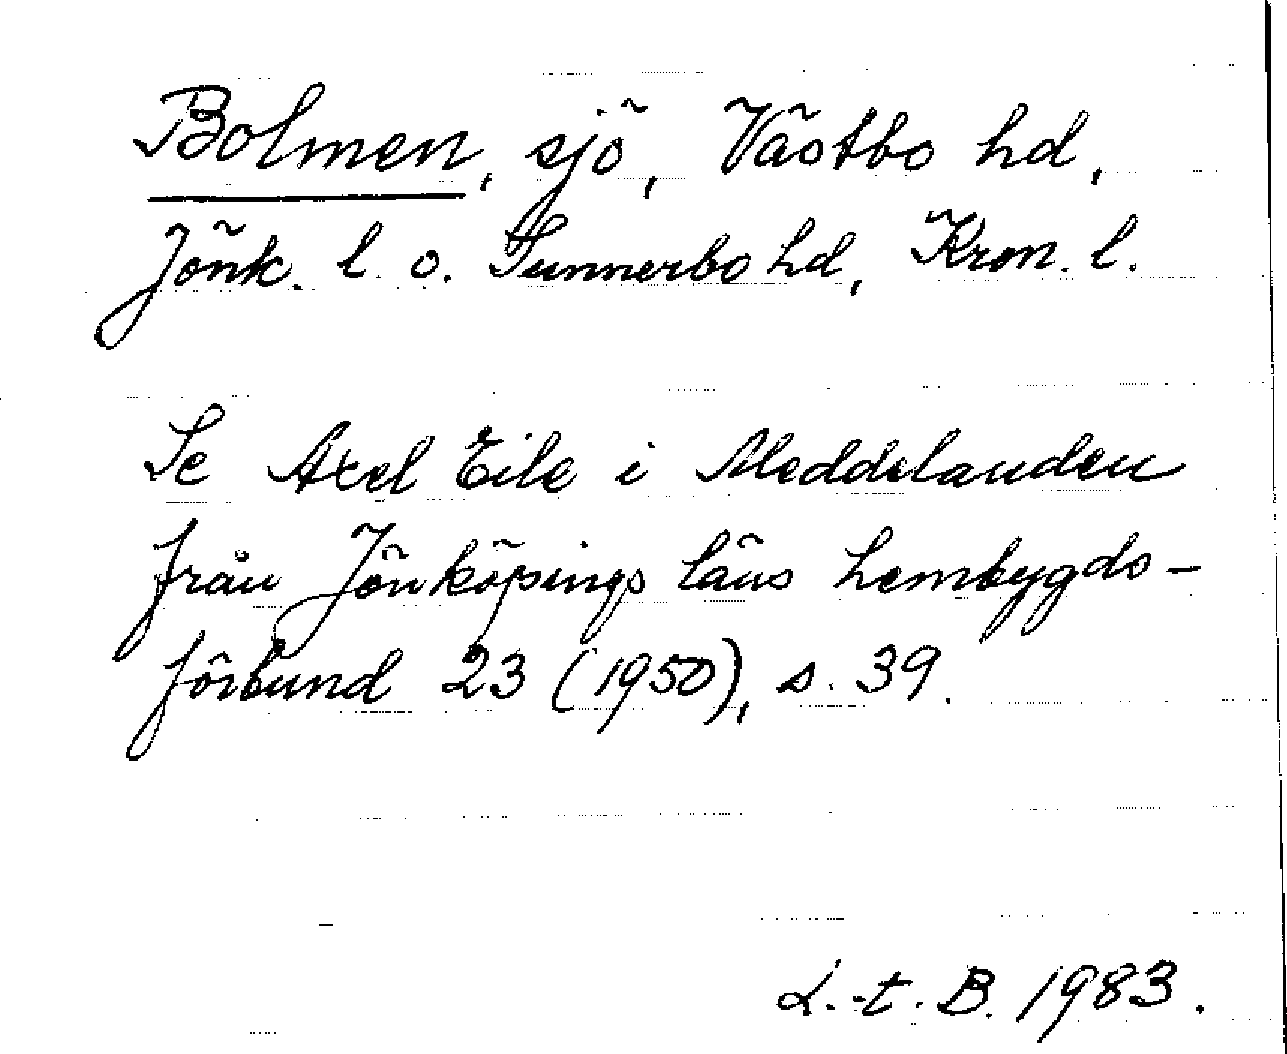 Bolmen, sjö, Västbo hd,
Jönk. l. o. Sunnerbo hd, Kron. l.
Se Axel Eile i Meddelanden
från Jönköpings läns hembygds-
förbund 23 (1950), s. 39.
d.-t. B. 1983.